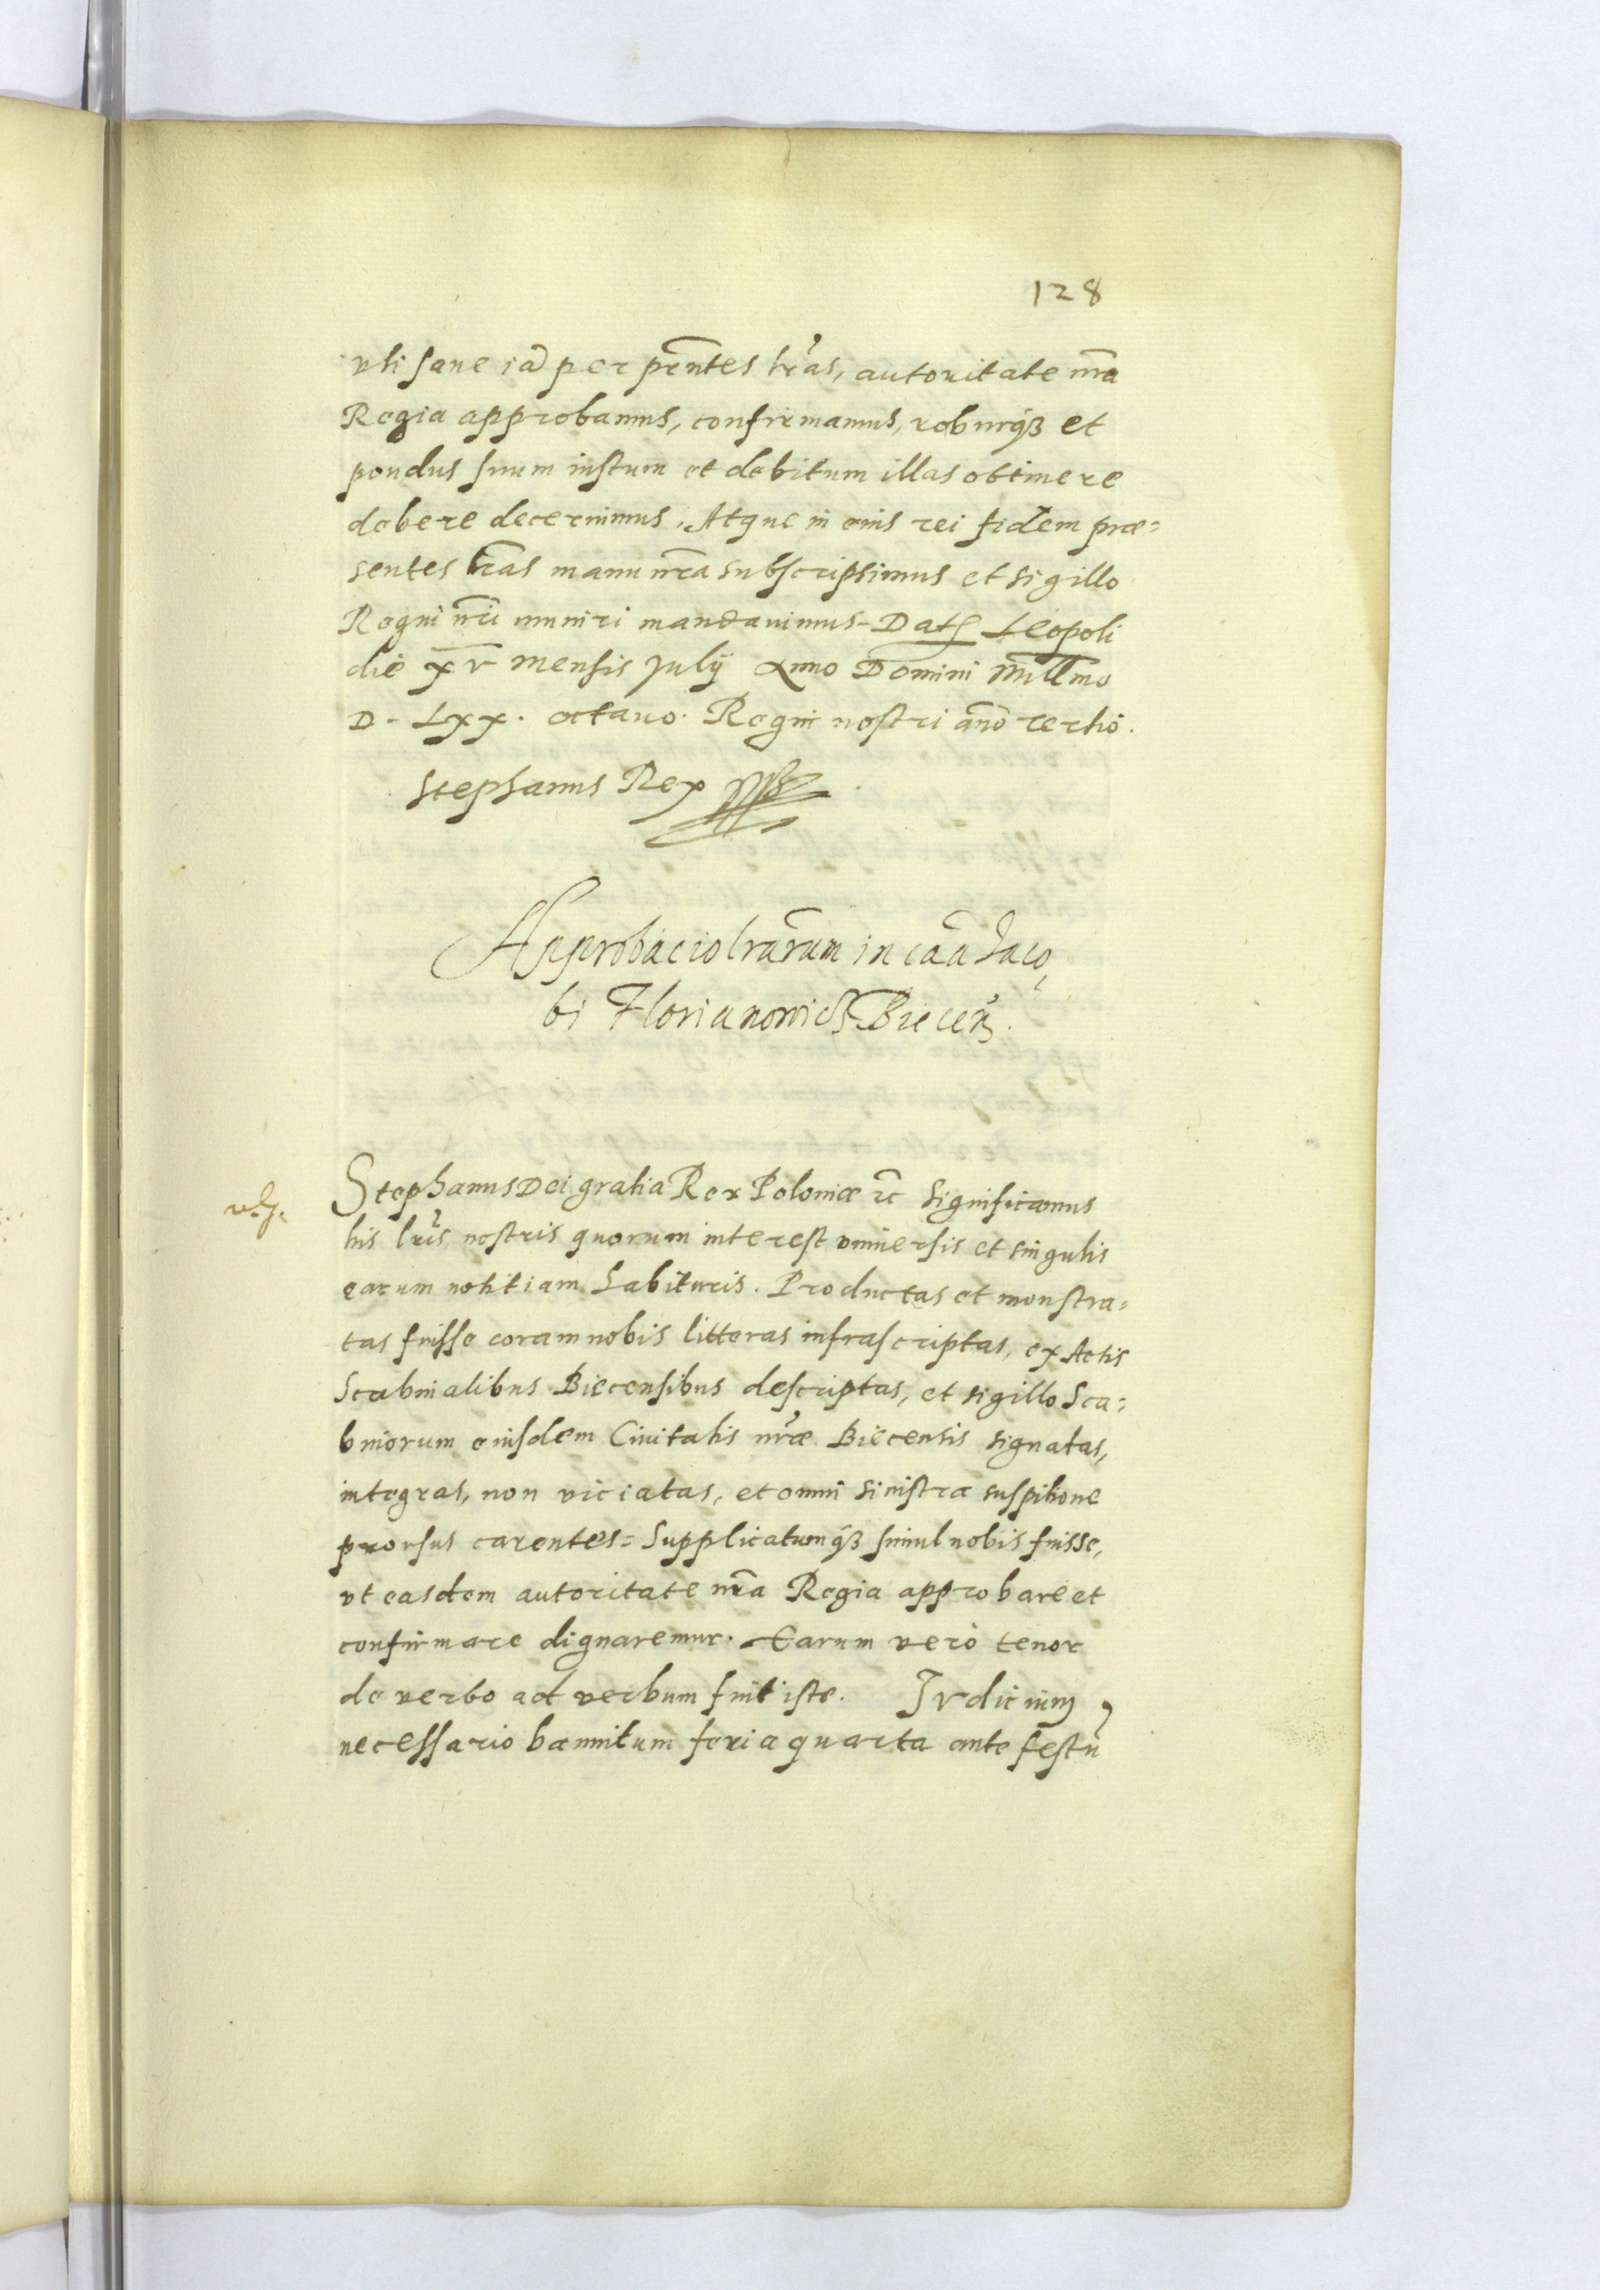 128
vti sane ia͠ per pn͠tes lr͠as, autoritate nr͠a
Regia approbamus, confirmamus, roburq3 et
pondus suum iustum et debitum illas obtinere
debere decernimus. Atque in eius rei fidem præ=
sentes lr͠as manu nr͠a subscripsimus et sigillo
Regni nr͠i muniri mandauimus - Datͫ Leopoli
die xv mensis Julÿ Anno Domini Mill͠mo
D. Lxx. octauo. Regni nostri an͠o tertio.
Stephanus Rex
Approbacio lr͠arum in ca͠a Jaco,
bi Florianowicz Biecen͠.
Stephanus Dei gratia Rex Poloniæ r͠c Significamus
his lr͠is nostris quorum interest vniuersis et singulis
earum notitiam habituris. Productas et monstra=
tas fuisse coram nobis litteras infrascriptas, ex Actis
Scabinalibus Biecensibus descriptas, et sigillo Sca=
biniorum eiusdem Ciuitatis nr͠æ Biecensis signatas,
integras, non viciatas, et omni sinistra suspitione
prorsus carentes= Supplicatumq3 simul nobis fuisse,
vt easdem autoritate nr͠a Regia approbare et
confirmare dignaremur. Earum vero tenor
de verbo ad verbum fuit iste. Judicium
necessario bannitum feria quarta ante festu͠